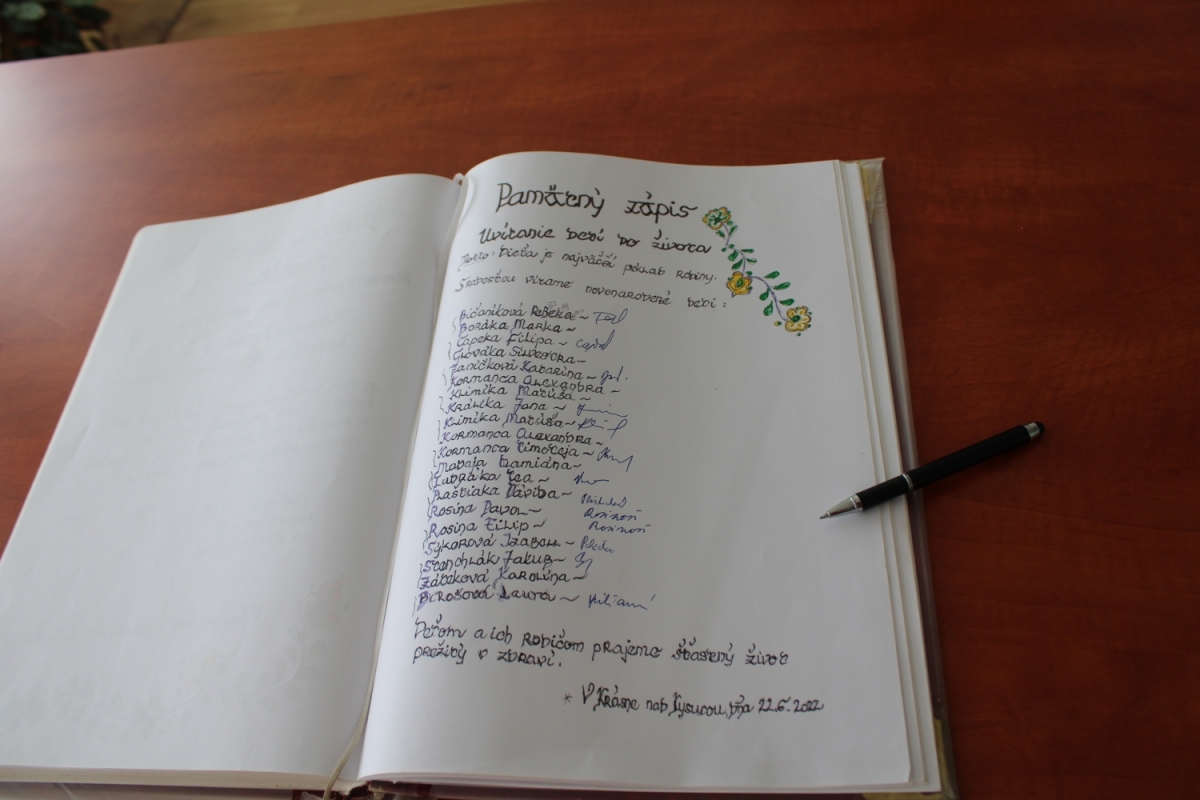 Pamätný zápis
Uvítanie detí do života
Motto: Dieťa je najväčší poklad rodiny.
S radosťou vítame novonarodené deti:
Bičaníková Rebeka ~
Boráka Marka ~
Capeka Filipa ~
Hlováka Silvestra ~
Janíčková Katarína ~
Kormanca Alexandra ~
Klimika Matúša ~
Králika Jana ~
Klimika Matúša ~
Kormanca Alexandra ~
Kormanca Timoteja ~
Mataja Damiána ~
Tea ~
Plaštiaka Dávida ~
Rosina Pavol ~
Rosina Filip ~
Sýkorová Izabela ~
Stanchlák Jakub ~
Záteková Karolína ~
Berošová Laura ~
Deťom a ich rodičom prajeme šťastný život
prežitý v zdraví.
* V Krásne nad Kysucou, dňa 22.6.2022